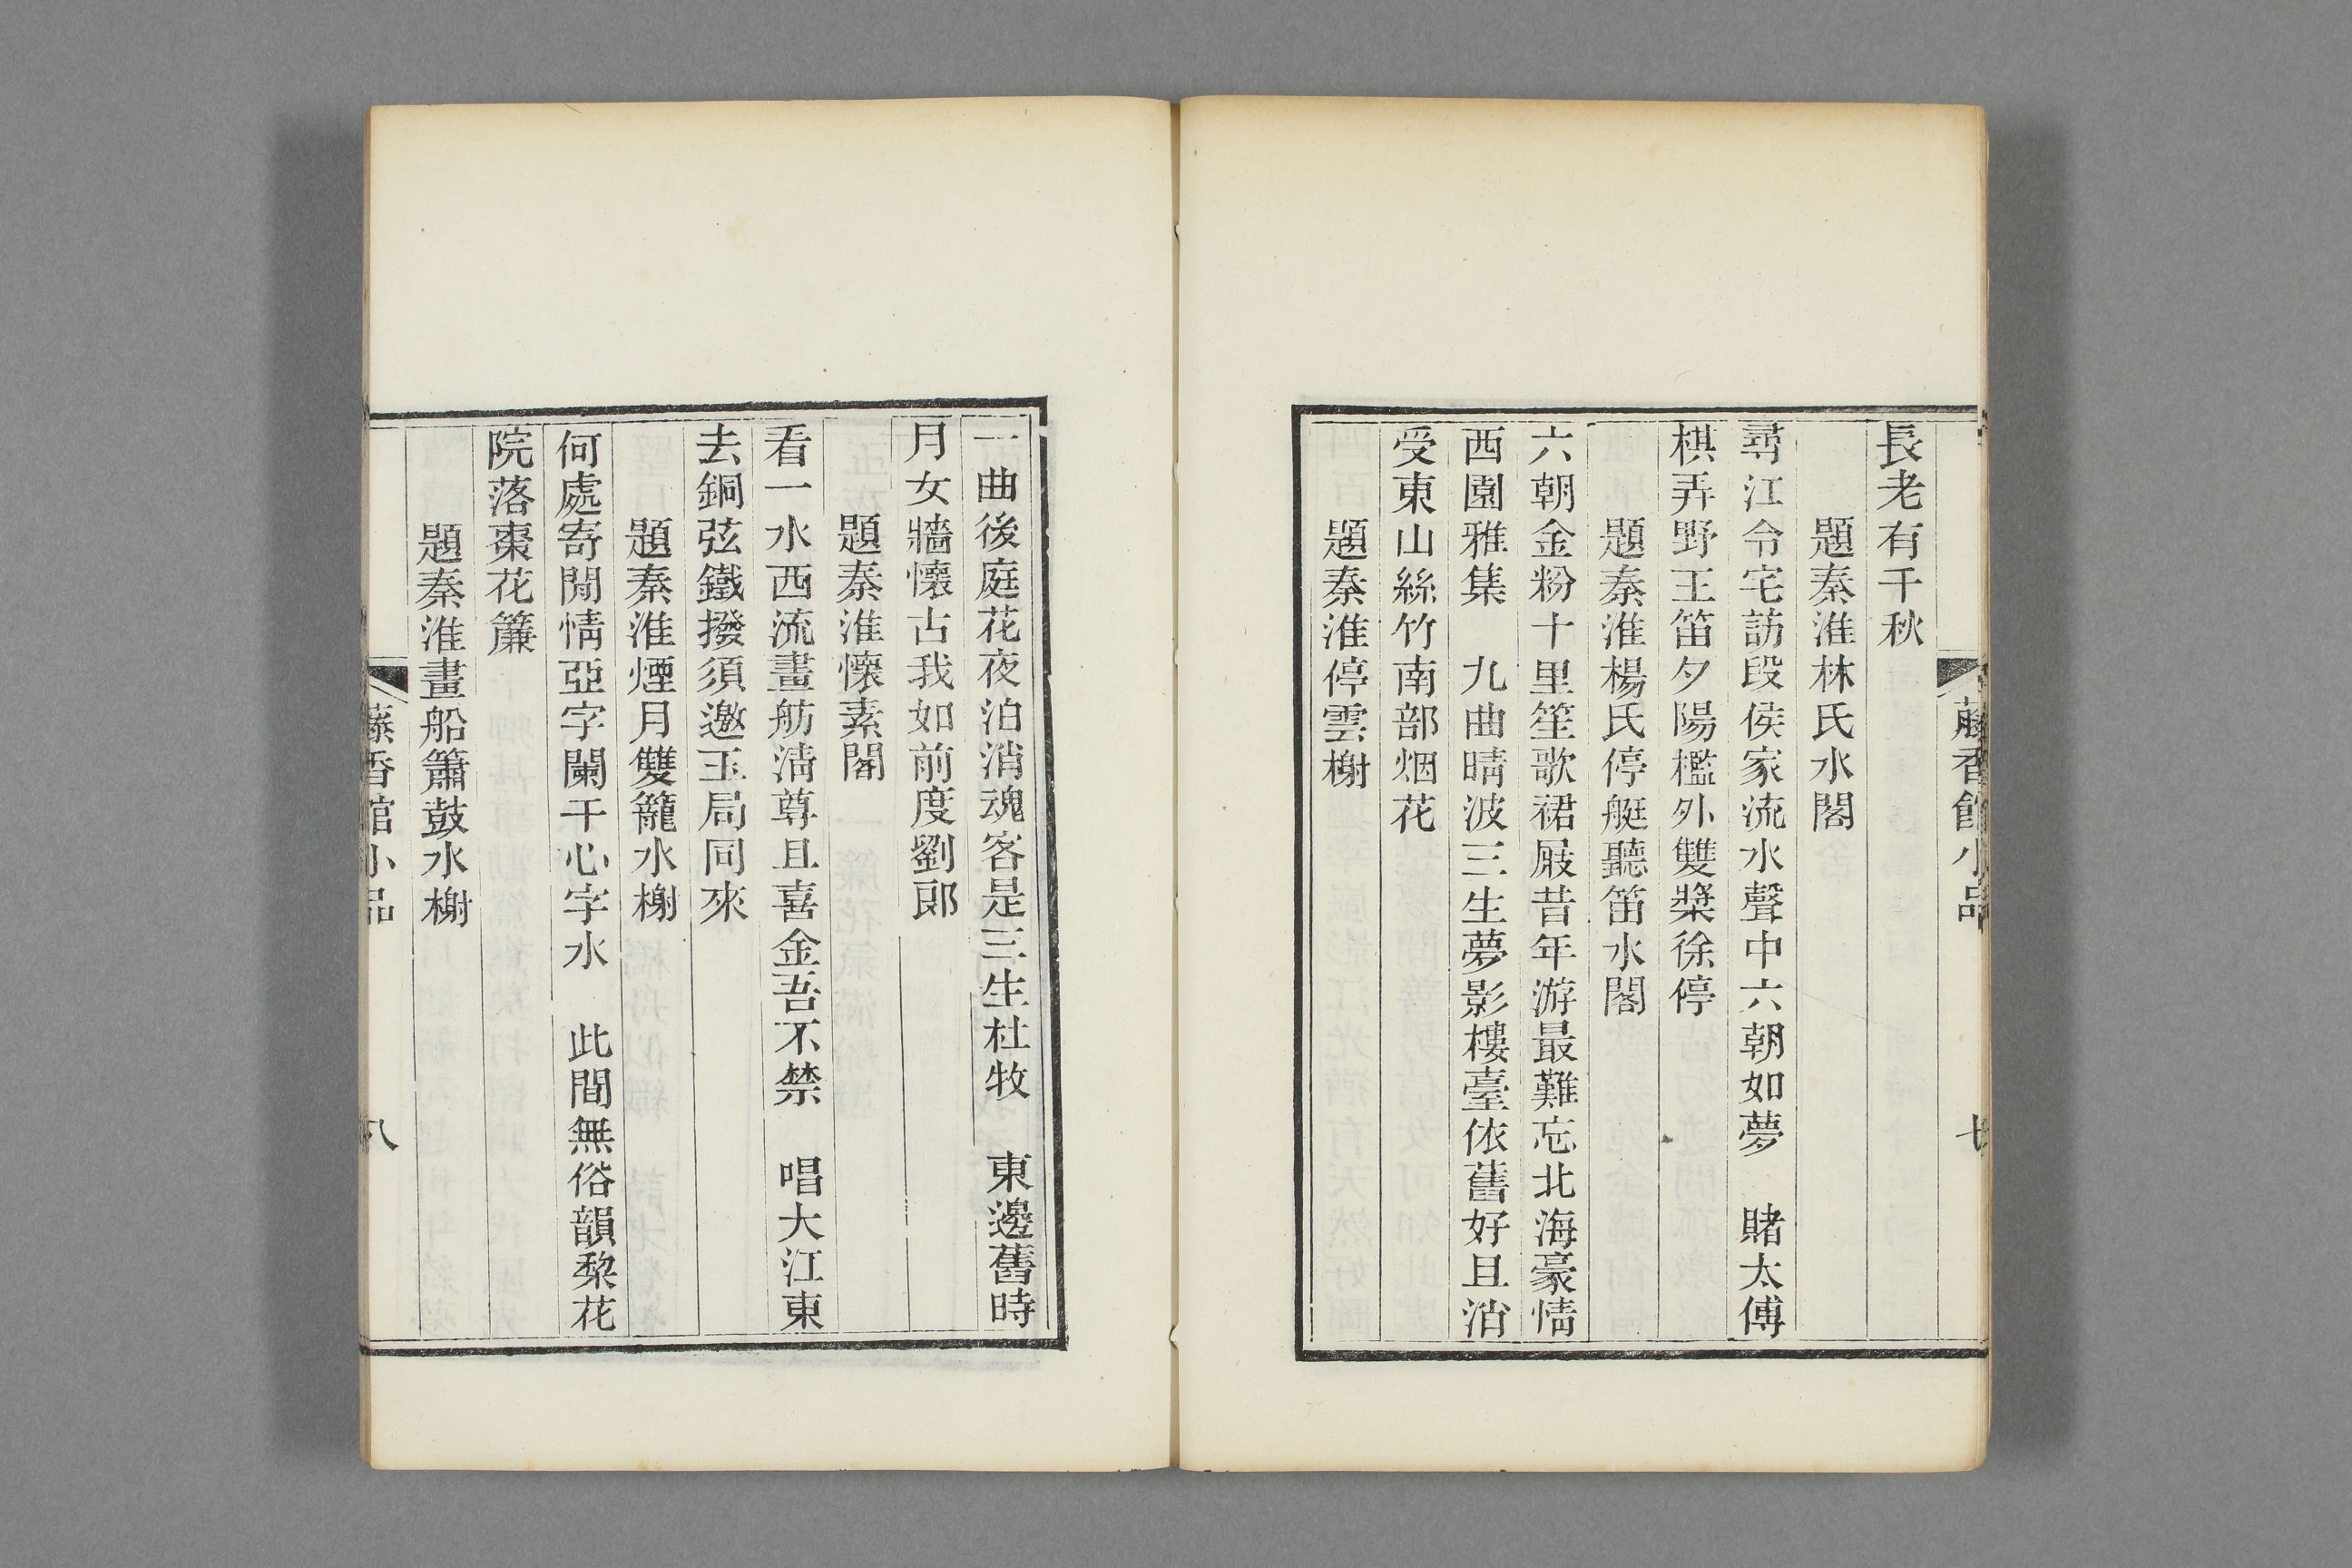 藤香館小品
七
長老有千秋
題秦淮林氏水閣
尋江令宅訪段侯家流水聲中六朝如夢　賭太傅
棋弄野王笛夕陽檻外雙槳徐停
題秦淮楊氏停艇聽笛水閣
六朝金粉十里笙歌裙屐昔年游最難忘北海豪情
西園雅集　九曲晴波三生夢影樓臺依舊好且消
受東山絲竹南部烟花
題秦淮停雲榭
一曲後庭花夜泊消魂客是三生杜牧　東邊舊時
月女牆懷古我如前度劉郎
題秦淮懷素閣
看一水西流畫舫淸尊且喜金吾不禁　唱大江東
去銅弦鐵撥須邀玉局同來
題秦淮煙月雙籠水榭
何處寄閒情亞字闌干心字水　此間無俗韻棃花
院落棗花簾
題秦淮畫船簫鼓水榭
藤香館小品
八